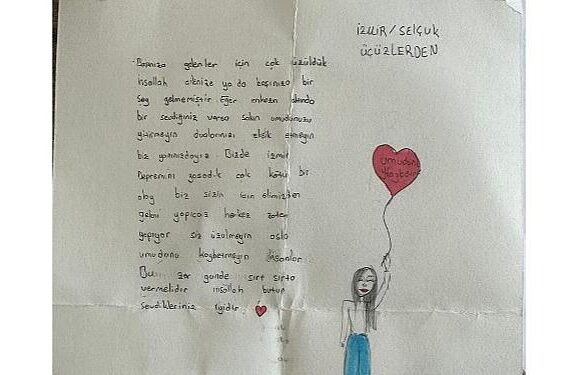 İZMİR/SELÇUK
ÜÇÜZLERDEN
Başınıza gelenler için çok üzüldük
inşallah ailenize ya da başınıza bir
şey gelmemiştir Eğer enkazın altında
bir sevdiğiniz varsa sakın umudunuzu
yitirmeyin dualarınızı eksik etmeyin
biz yanınızdayız Bizde izmir
Depremini yaşadık çok kötü bir
olay biz sizin için elimizden
geleni yapıcaz herkez zaten
yapıyor siz üzülmeyin asla
umudunu kaybetmeyin insanlar
Bu zor günde sırt sırta
vermelidir inşallah bütün
sevdikleriniz iyidir.
umudunu
Kaybetme